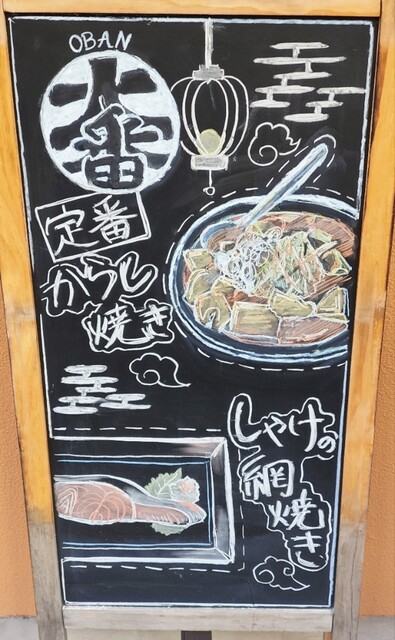 OBAN
大番
定番
からし
焼き
しゃけの
網
焼き